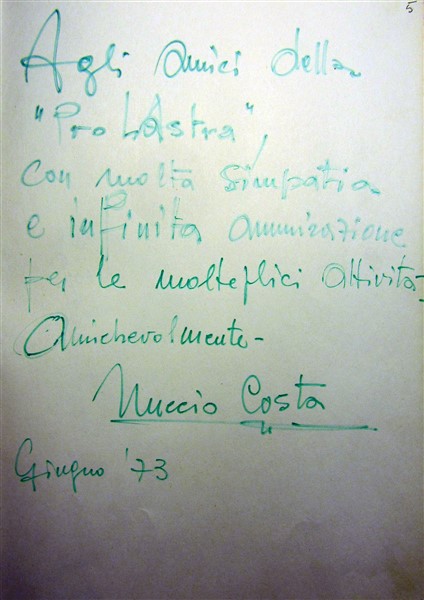 5
Agli amici della
"Pro LAstra",
con molta simpatia
e infinita ammirazione
per le molteplici attività-
Amichevolmente-
Nuccio Costa
Giugno '73